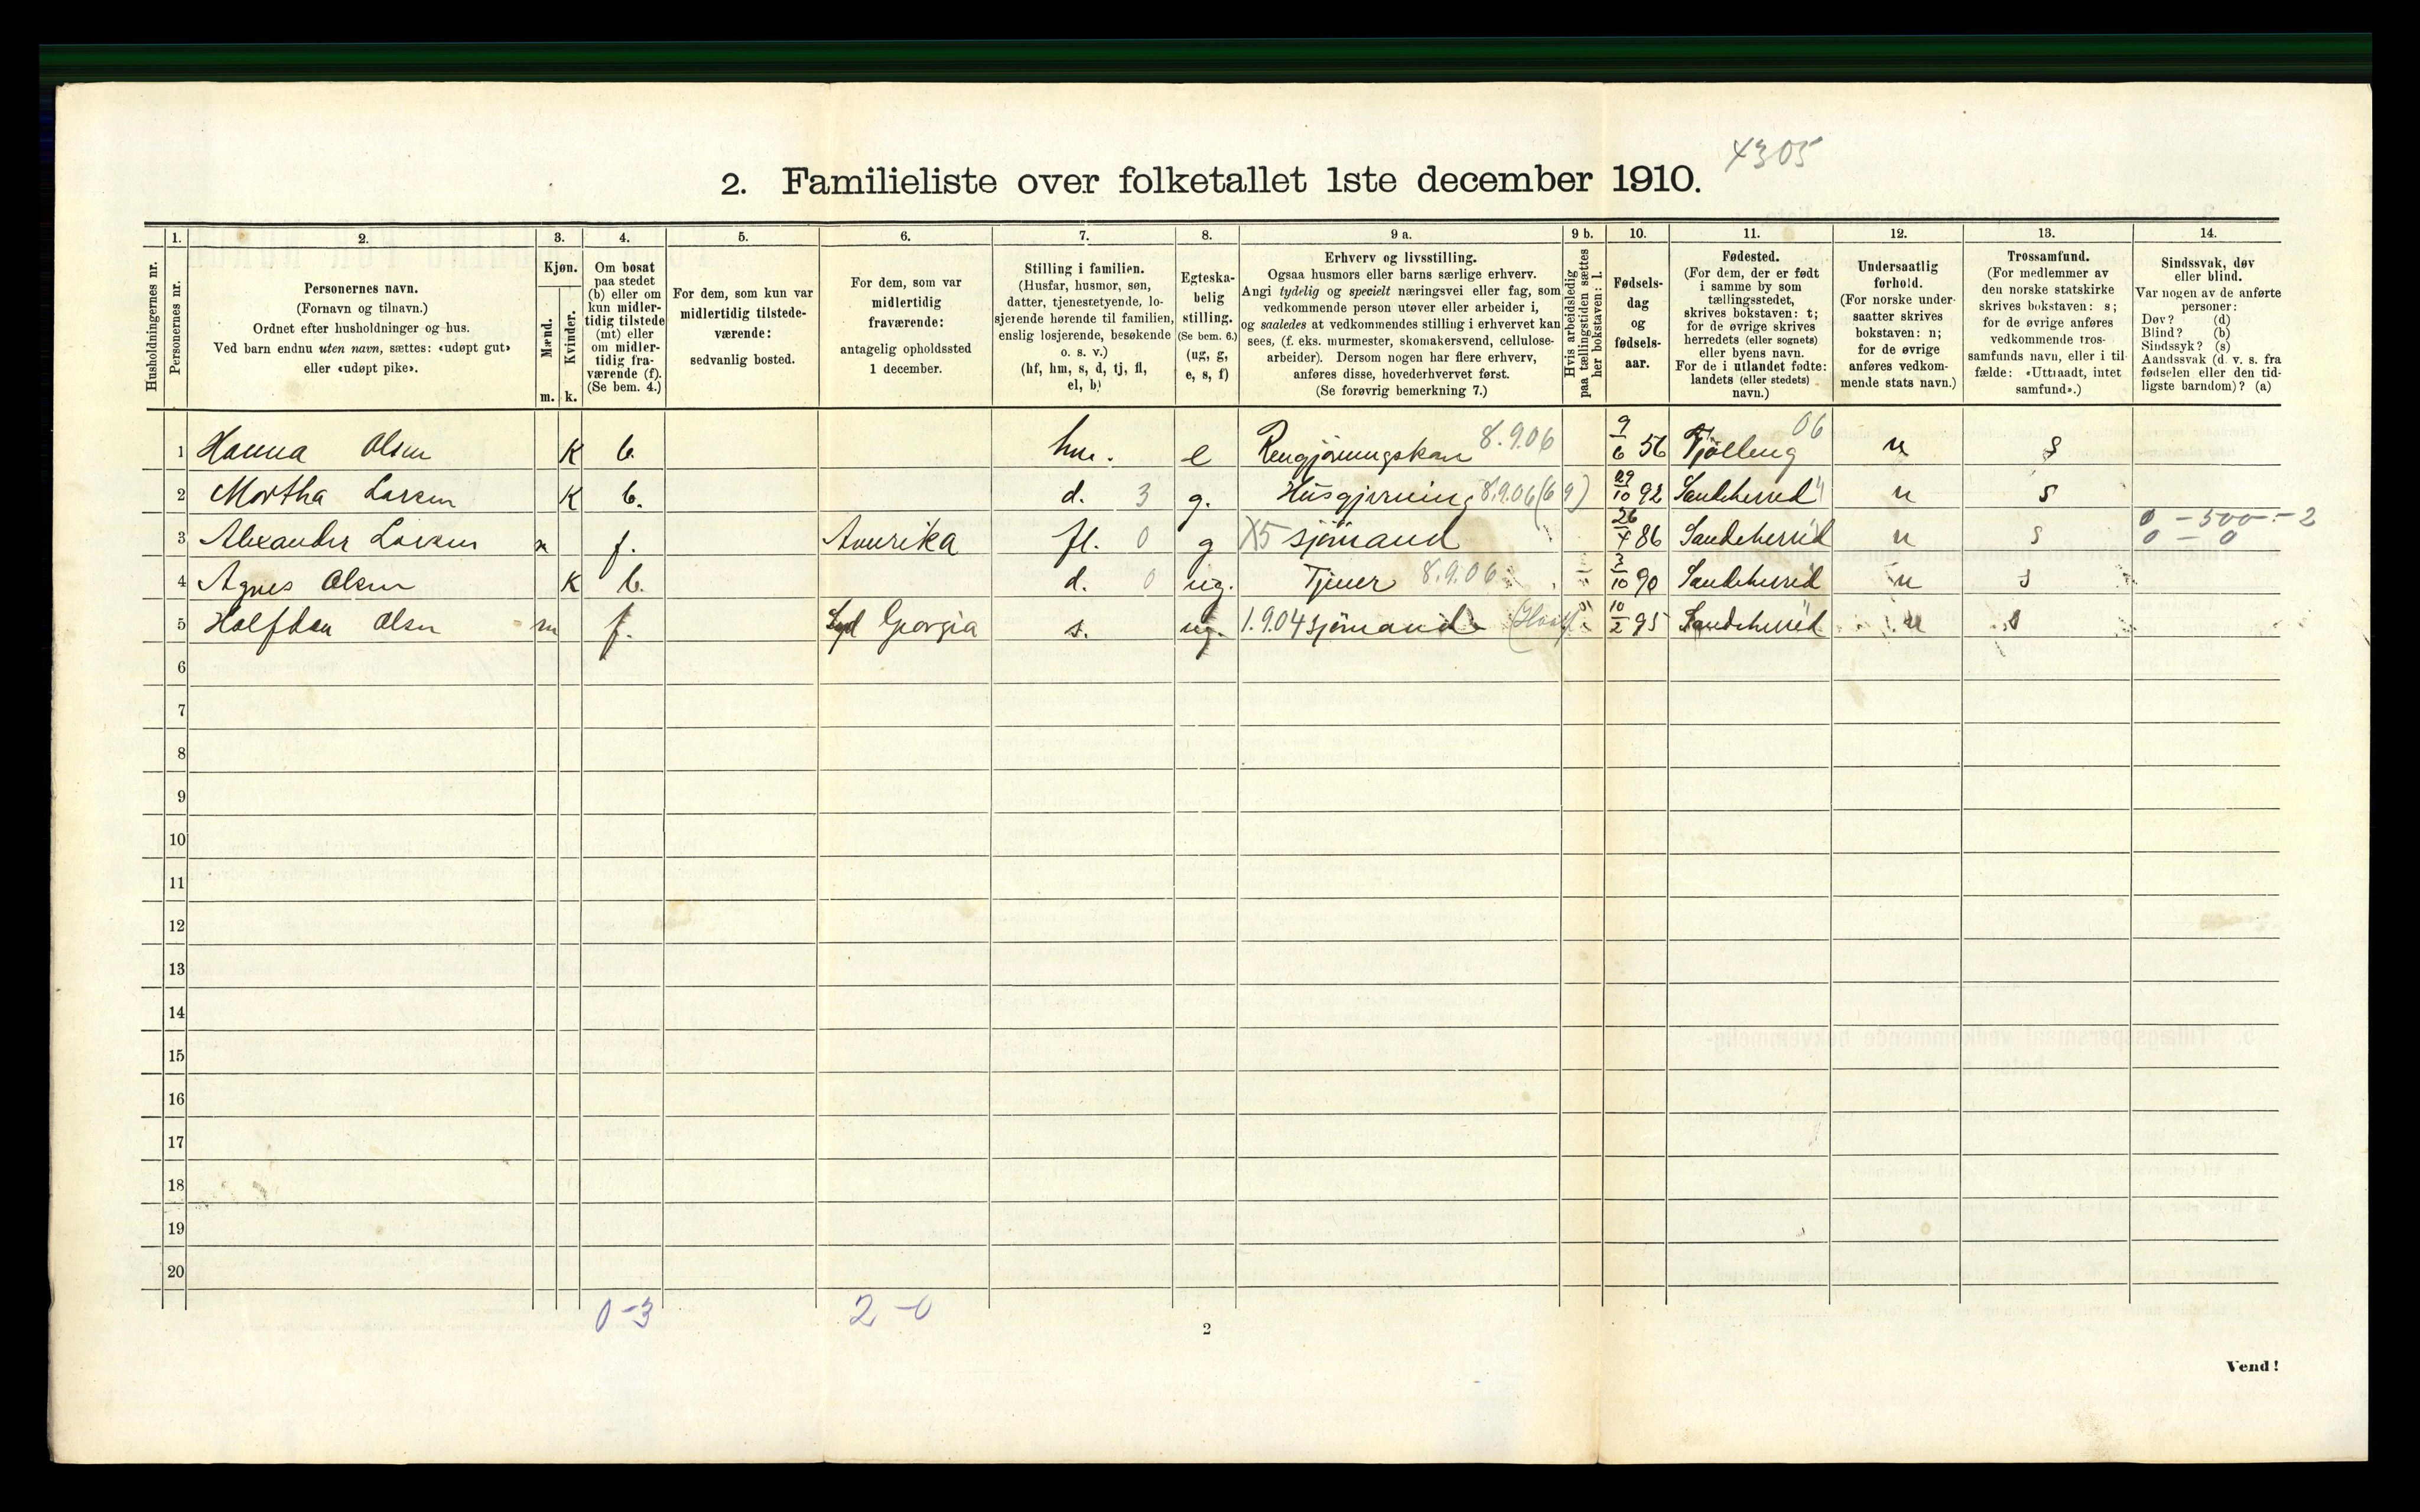 4305
2. Familieliste over folketallet 1ste december 1910.
1. 2. 3. 4. 5. 6. 7. 8. 9 a. 9 b. 10. 11. 12. 13. 14.
Husholdningernes nr.
Personernes nr.
Personernes navn.
(Fornavn og tilnavn.)
Ordnet efter husholdninger og hus.
Ved barn endnu uten navn, sættes: «udøpt gut»
eller «udøpt pike».
Kjøn.
Mænd.
Kvinder.
m. k.
Om bosat
paa stedet
(b) eller om
kun midler-
tidig tilstede
(mt) eller
om midler-
tidig fra-
værende (f).
(Se bem. 4.)
For dem, som kun var
midlertidig tilstede-
værende:
sedvanlig bosted.
For dem, som var
midlertidig
fraværende:
antagelig opholdssted
1 december.
Stilling i familien.
(Husfar, husmor, søn,
datter, tjenestetyende, lo-
sjerende hørende til familien,
enslig losjerende, besøkende
o. s. v.)
(hf, hm, s, d, tj, fl,
el, b)
Egteska-
belig
stilling.
(Se bem. 6.)
(ug, g,
e, s, f)
Erhverv og livsstilling.
Ogsaa husmors eller barns særlige erhverv.
Angi tydelig og specielt næringsvei eller fag, som
vedkommende person utøver eller arbeider i,
og saaledes at vedkommendes stilling i erhvervet kan
sees, (f. eks. murmester, skomakersvend, cellulose-
arbeider). Dersom nogen har flere erhverv,
anføres disse, hovederhvervet først.
(Se forøvrig bemerkning 7.)
Hvis arbeidsledig
paa tællingstiden sættes
her bokstaven: l.
Fødsels-
dag
og
fødsels-
aar.
Fødested.
(For dem, der er født
i samme by som
tællingsstedet,
skrives bokstaven: t;
for de øvrige skrives
herredets (eller sognets)
eller byens navn.
For de i utlandet fødte:
landets (eller stedets)
navn.)
Undersaatlig
forhold.
(For norske under-
saatter skrives
bokstaven: n;
for de øvrige
anføres vedkom-
mende stats navn.)
Trossamfund.
(For medlemmer av
den norske statskirke
skrives bokstaven: s;
for de øvrige anføres
vedkommende tros-
samfunds navn, eller i til-
fælde: «Uttraadt, intet
samfund».)
Sindssvak, døv
eller blind.
Var nogen av de anførte
personer:
Døv? (d)
Blind? (b)
Sindssyk? (s)
Aandssvak (d. v. s. fra
fødselen eller den tid-
ligste barndom)? (a)
1 Hanna Olsen K b. hm. e Rengjøringskone 8.9.06 9/6 56 Tjølling 06 n s
2 Martha Larsen K b. d. 3 g. Husgjerning 8.9.06 (69) 29/10 92 Sandeherred n s
3 Alexander Larsen m f. Amerika fl. 0 g X5 sjømand 26/4 86 Sandeherred n s 0 - 500 - 2
0 - 0
4 Agnes Olsen K b. d. 0 ug. Tjener 8.9.06 3/10 90 Sandeherred n s
5 Halfdan Olsen m f. Syd Georgia s. ug. 1.9.04 sjømand (Hval) 10/2 95 Sandeherred n s
6
7
8
9
10
11
12
13
14
15
16
17
18
19
20
0-3 2-0
2
Vend!